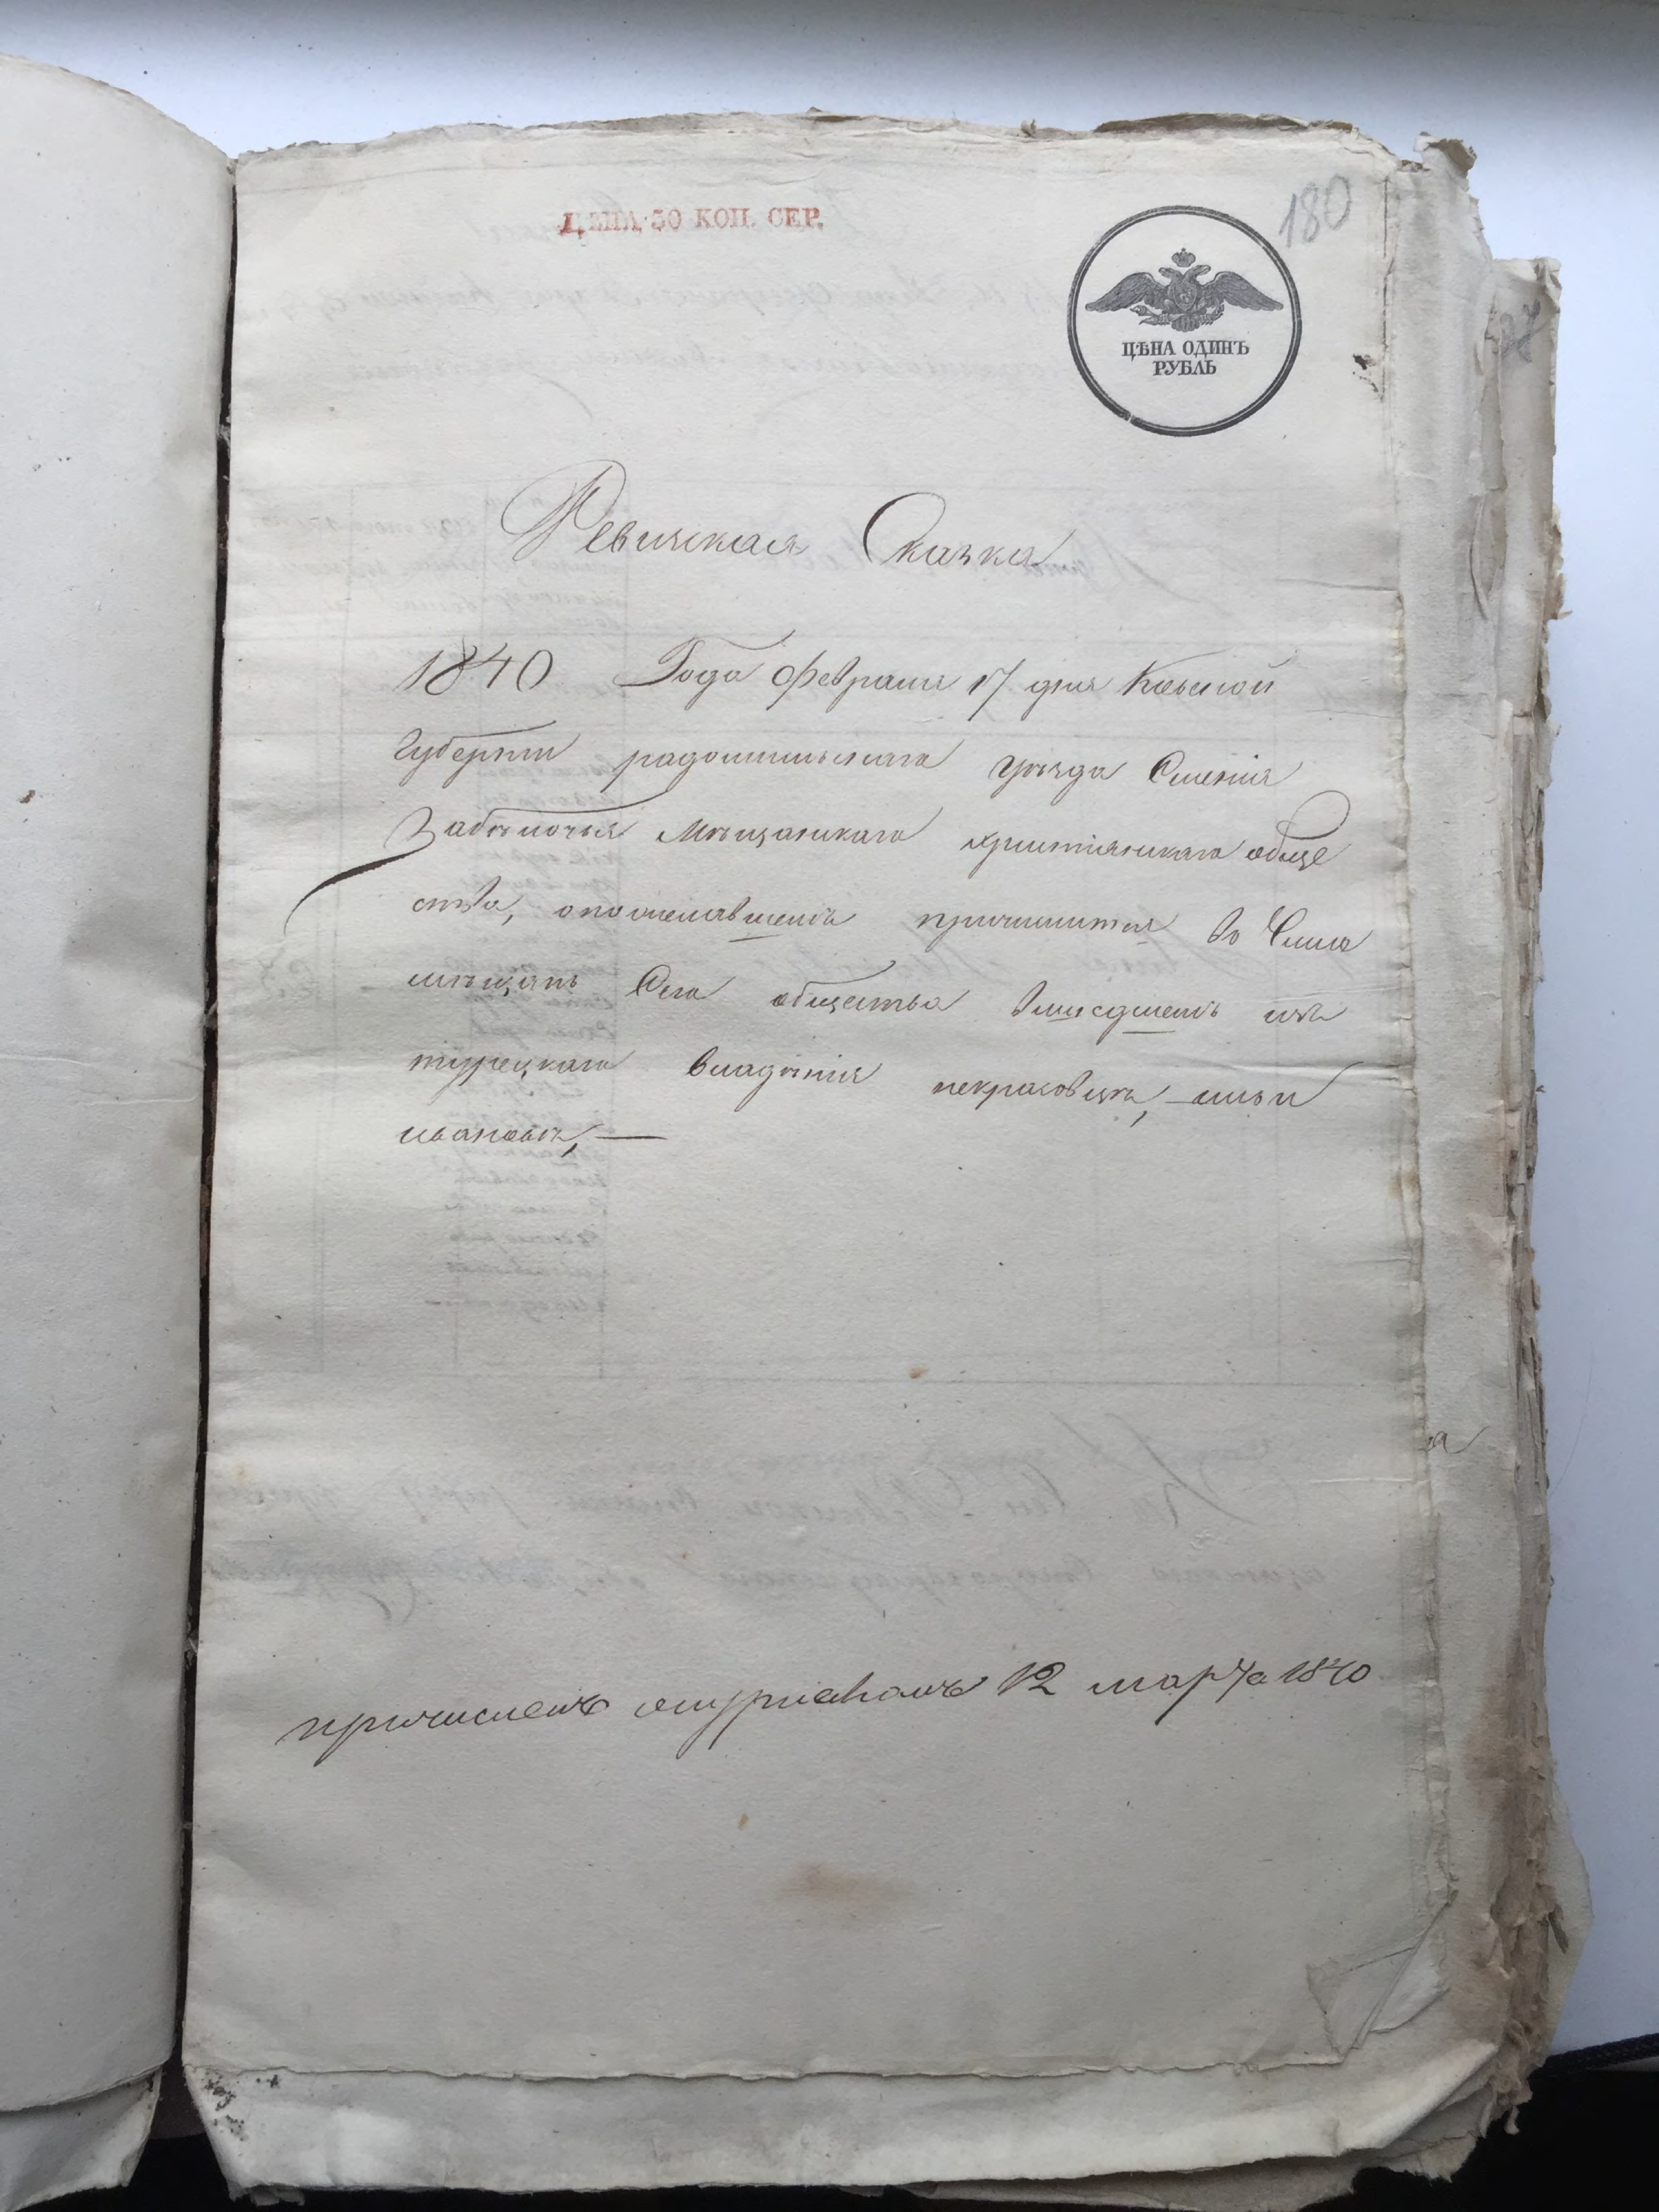 180
ЦѢНА 50 КОП. СЕР.
ЦѢНА ОДИНЪ
РУБЛЬ
Ревижская Сказка
1840 Года февраля 17 дня Киевской
Губерніи радомишльскаго уѣзда Сменія
Забѣлочья Мѣщанскаго христіянскаго обще
ства, о пожелавшемъ причислится во Число
мѣщанъ Сего общества вышедшемъ изъ
турецкаго владѣнія некрасовцѣ,
ивановѣ, —
причисленъ 12 марта 1840